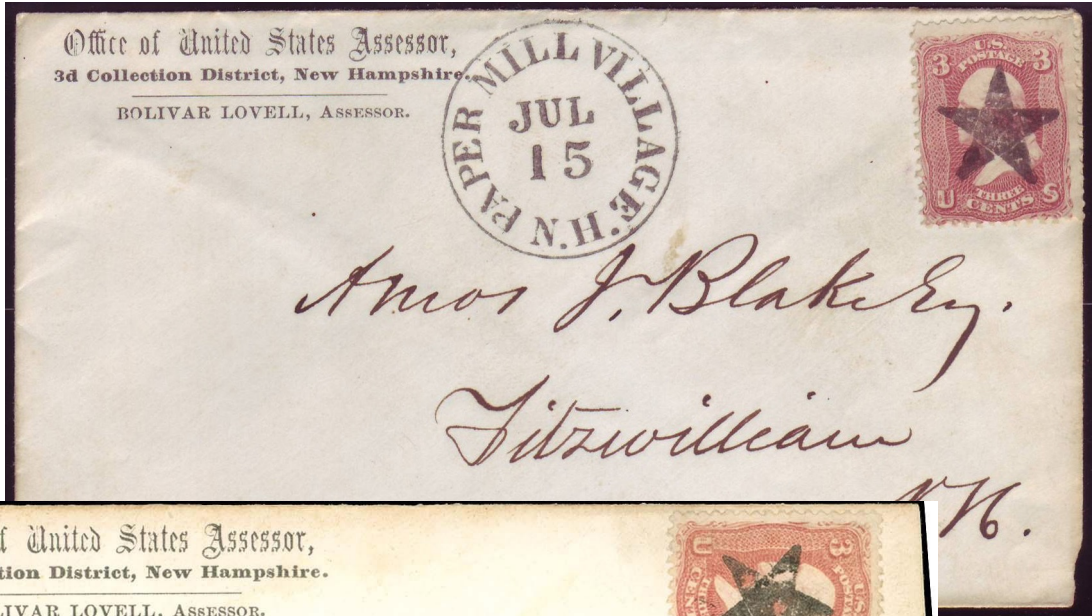 Office of United States Assessor,
3d Collection District, New Hampshire.
BOLIVAR LOVELL, ASSESSOR.
PAPER MILL VILLAGE. N.H.
JUL
15
U.S.
POSTAGE
3 3
THREE
CENTS
U S
Amos J. Blake Esq.
Fitzwilliam
N.H.
f United States Assessor,
tion District, New Hampshire.
LIVAR LOVELL, ASSESSOR.
U
3
POSTAGE